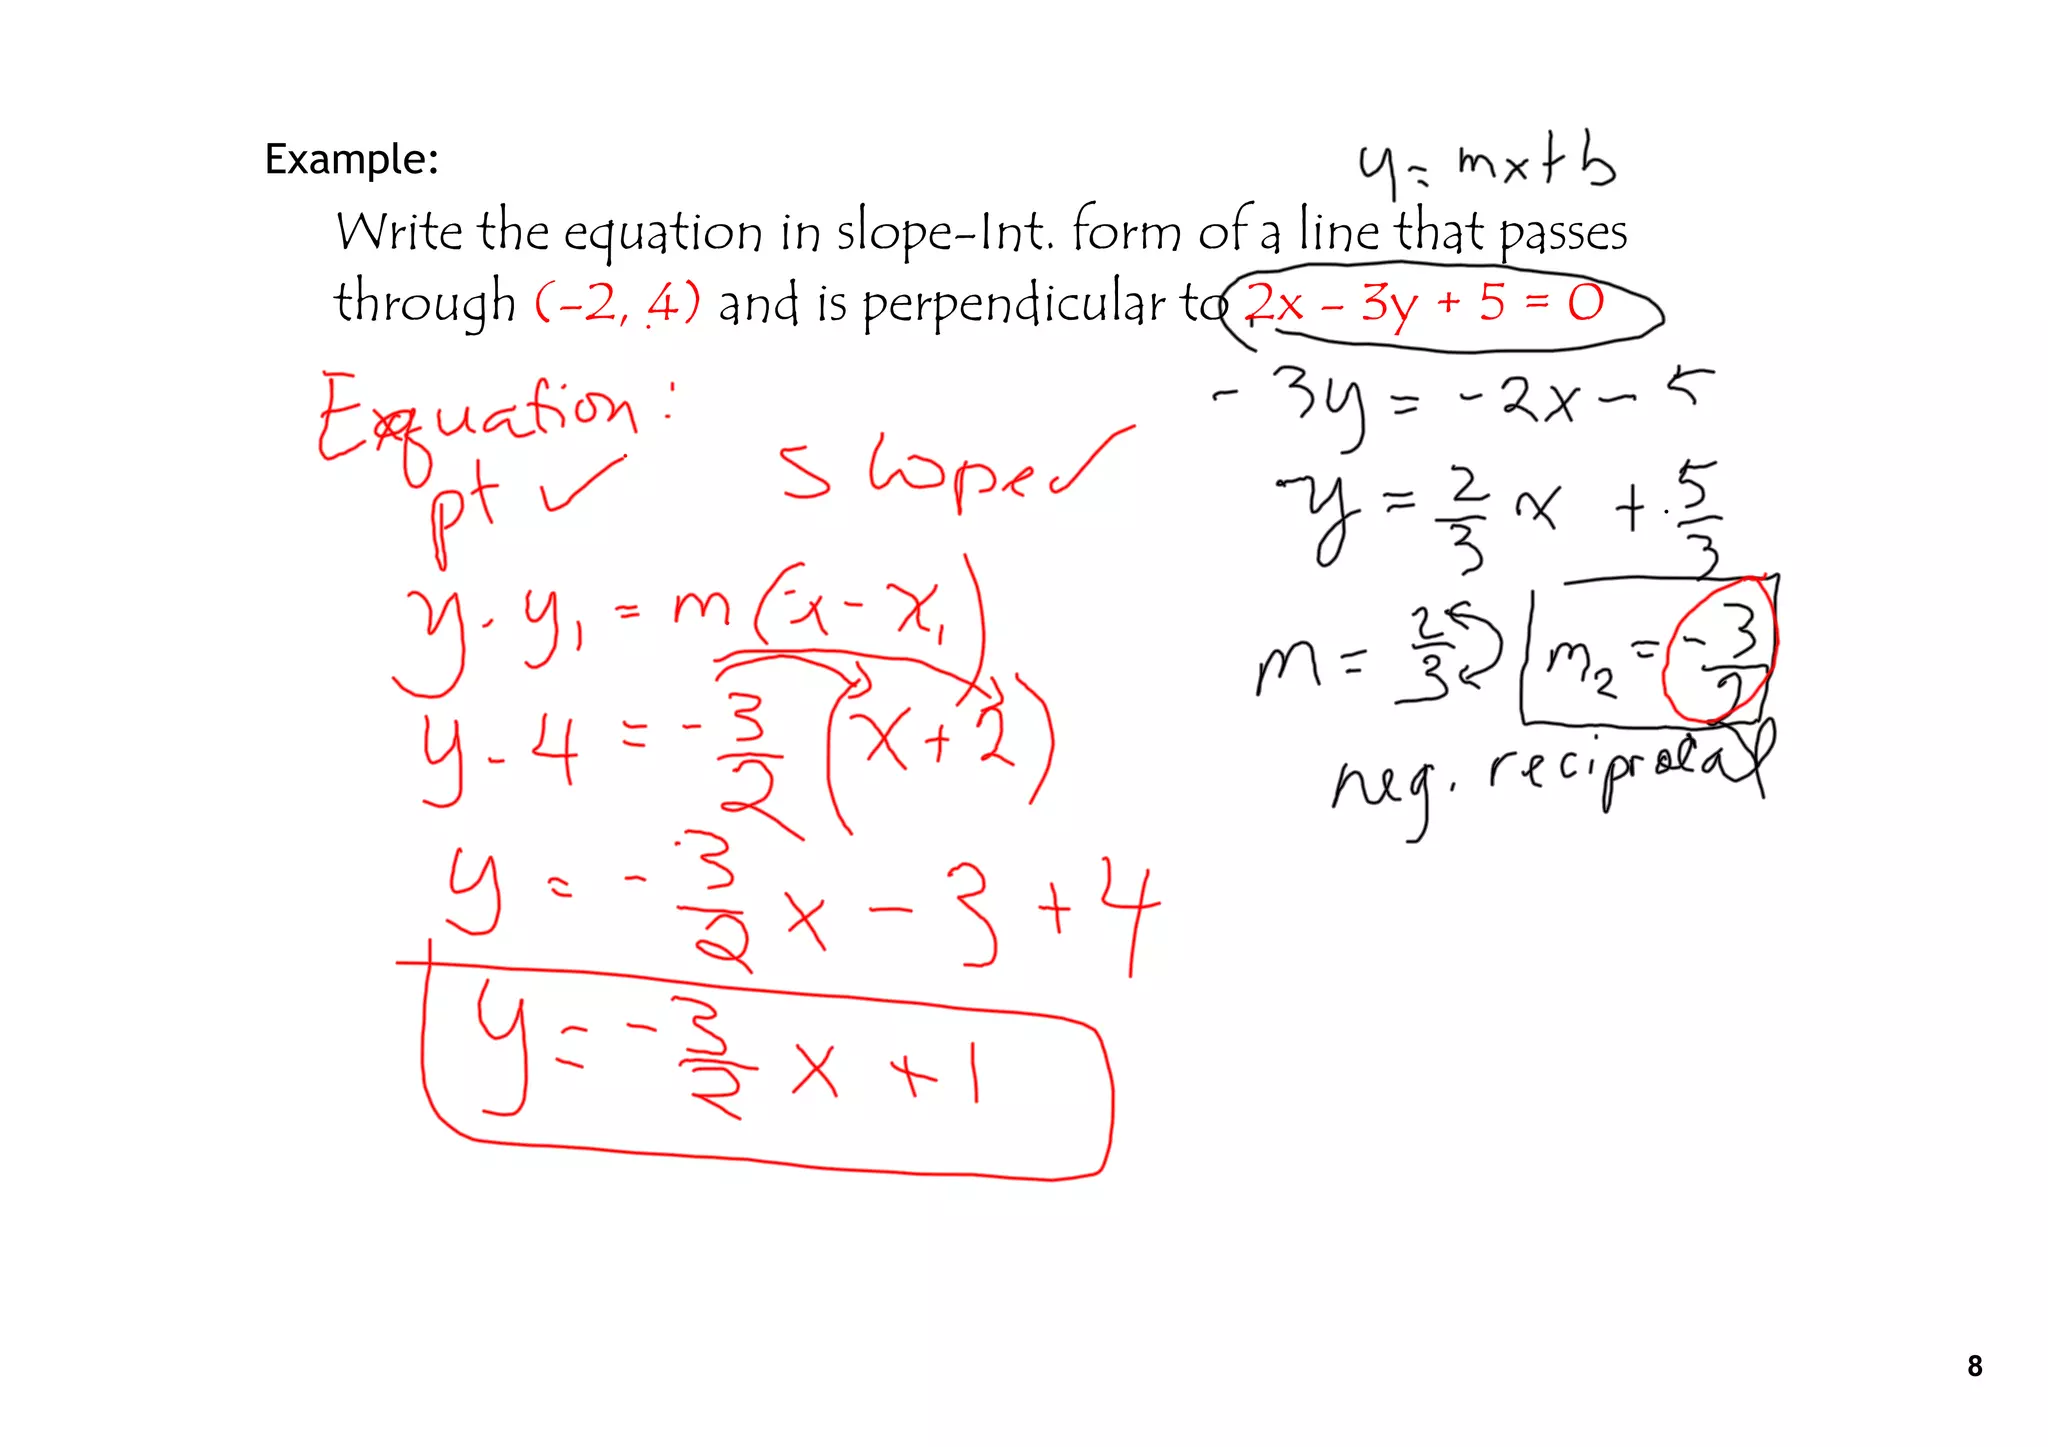 Example:
y = mx + b
Write the equation in slope-Int. form of a line that passes
through (-2, 4) and is perpendicular to 2x - 3y + 5 = 0
Equation:
pt ✓ slope ✓
y - y₁ = m(x - x₁)
y - 4 = -3/2 (x + 2)
y = -3/2 x - 3 + 4
y = -3/2 x + 1
-3y = -2x - 5
y = 2/3 x + 5/3
m = 2/3 m₂ = -3/2
neg. reciprocal
8